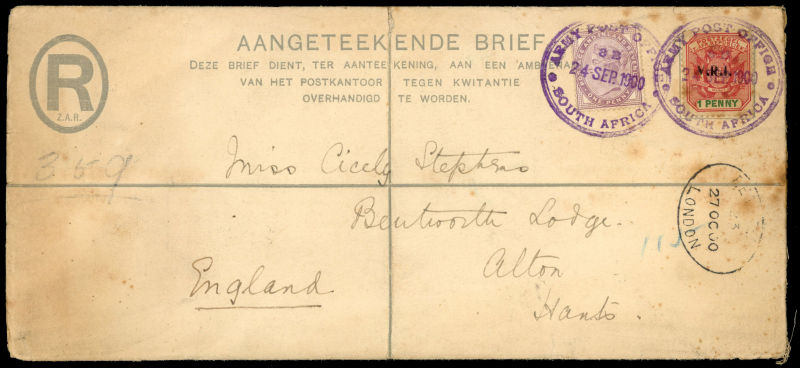 AANGETEEKENDE BRIEF
DEZE BRIEF DIENT, TER AANTEEKENING, AAN EEN AMBTENAAR
VAN HET POSTKANTOOR TEGEN KWITANTIE
OVERHANDIGD TE WORDEN.
R
Z.A.R.
ARMY POST OFFICE
3B
24 SEP. 1900
SOUTH AFRICA
ARMY POST OFFICE
V.R.I.
1 PENNY
SOUTH AFRICA
359
Miss Cicely Stephens
Bentworth Lodge.
Alton
Hants.
England
27 OC 00
LONDON